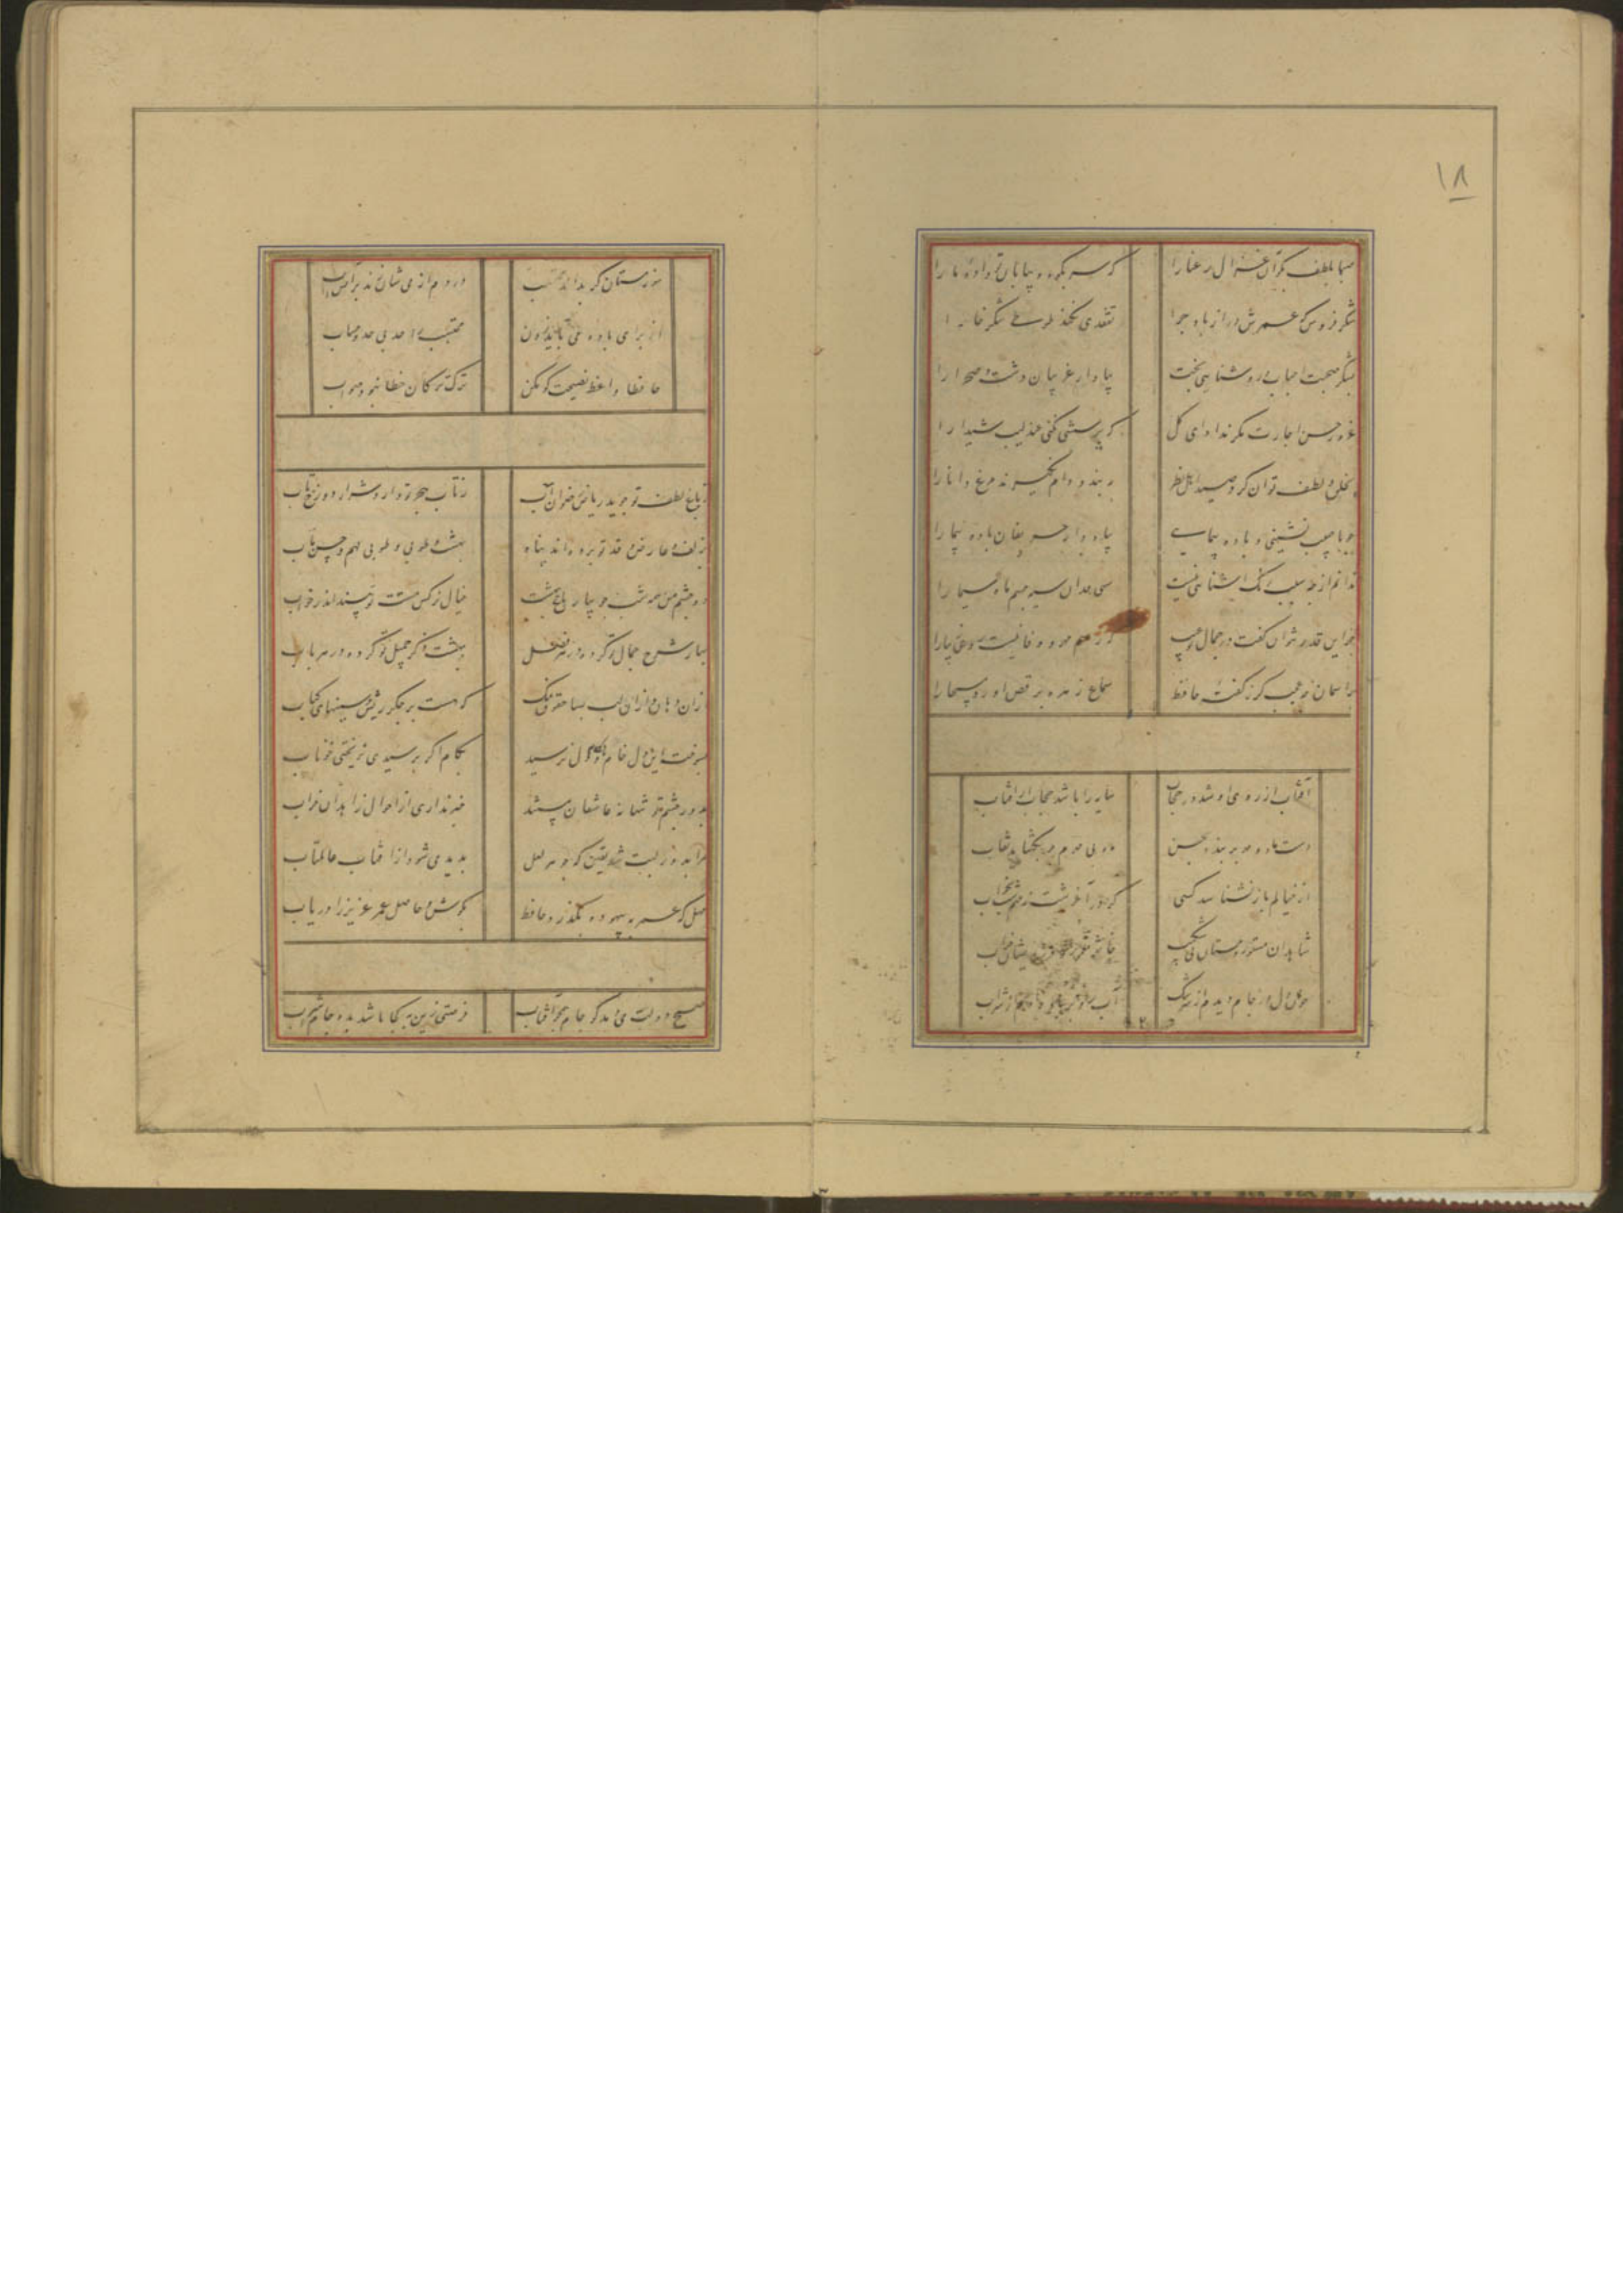 ۱۸
صبا بلطف بگو آن غزال رعنا را که سر بکوه و بیابان تو داده ما را
شکر فروش که عمرش دراز باد چرا تفقدی نکند طوطی شکرخا را
بشکر صحبت احباب و روشنایی بخت بیاد آر غریبان دشت و صحرا را
غرور حسن اجازت مگر نداد ای گل که پرسشی نکنی عندلیب شیدا را
بخلق و لطف توان کرد صید اهل نظر به بند و دام نگیرند مرغ دانا را
چو با حبیب نشینی و باده پیمایی بیاد دار حریفان باده پیما را
ندانم از چه سبب رنگ آشنایی نیست سهی قدان سیه چشم ماه سیما را
جز این قدر نتوان گفت در جمال تو عیب که رسم مهر و وفا نیست روی زیبا را
بر آسمان نه عجب گر ز گفته حافظ سماع زهره برقص آورد مسیحا را
آفتاب از روی او شد در حجاب سایه را باشد حجاب از آفتاب
دست ماه و مهر بربندد بحسن ماه بی مهرم چو بگشاید نقاب
از خیالم باز نشناسد کسی
شاهدان مستور و مستان بی شکیب
خون دل در جام دیدم از سرشک
خون مستان گر بداند محتسب
از برای باده می باید زدن محتسب را حد بی حد و حساب
حافظا واعظ نصیحت گو مکن ترک ترکان خطا نبود صواب
ز باغ لطف تو جوید ریاض رضوان آب ز تاب هجر تو دارد شرار دوزخ تاب
ز لف و عارض و قد تو برده اند پناه بهشت و طوبی و طوبی لهم و حسن مآب
دو چشم من همه شب جویبار باغ بهشت خیال نرگس مست تو بیند اندر خواب
بهار شرح جمال تو کرده در هر فصل بهشت ذکر جمیل تو کرده در هر باب
که هست بر جگر ریش و سینهای کباب
بسوخت این دل خام و بکام دل نرسید بکام اگر برسیدی نریختی خوناب
بدور چشم تو تنها نه عاشقان مستند خبر نداری از احوال زاهدان خراب
مرا بدور لبت شد یقین که جوهر لعل پدید می شود از آفتاب عالمتاب
مهل که عمر به بیهوده بگذرد حافظ بکوش و حاصل عمر عزیز را دریاب
صبح دولت می دمد کو جام همچو آفتاب فرصتی زین به کجا باشد بده جام شراب